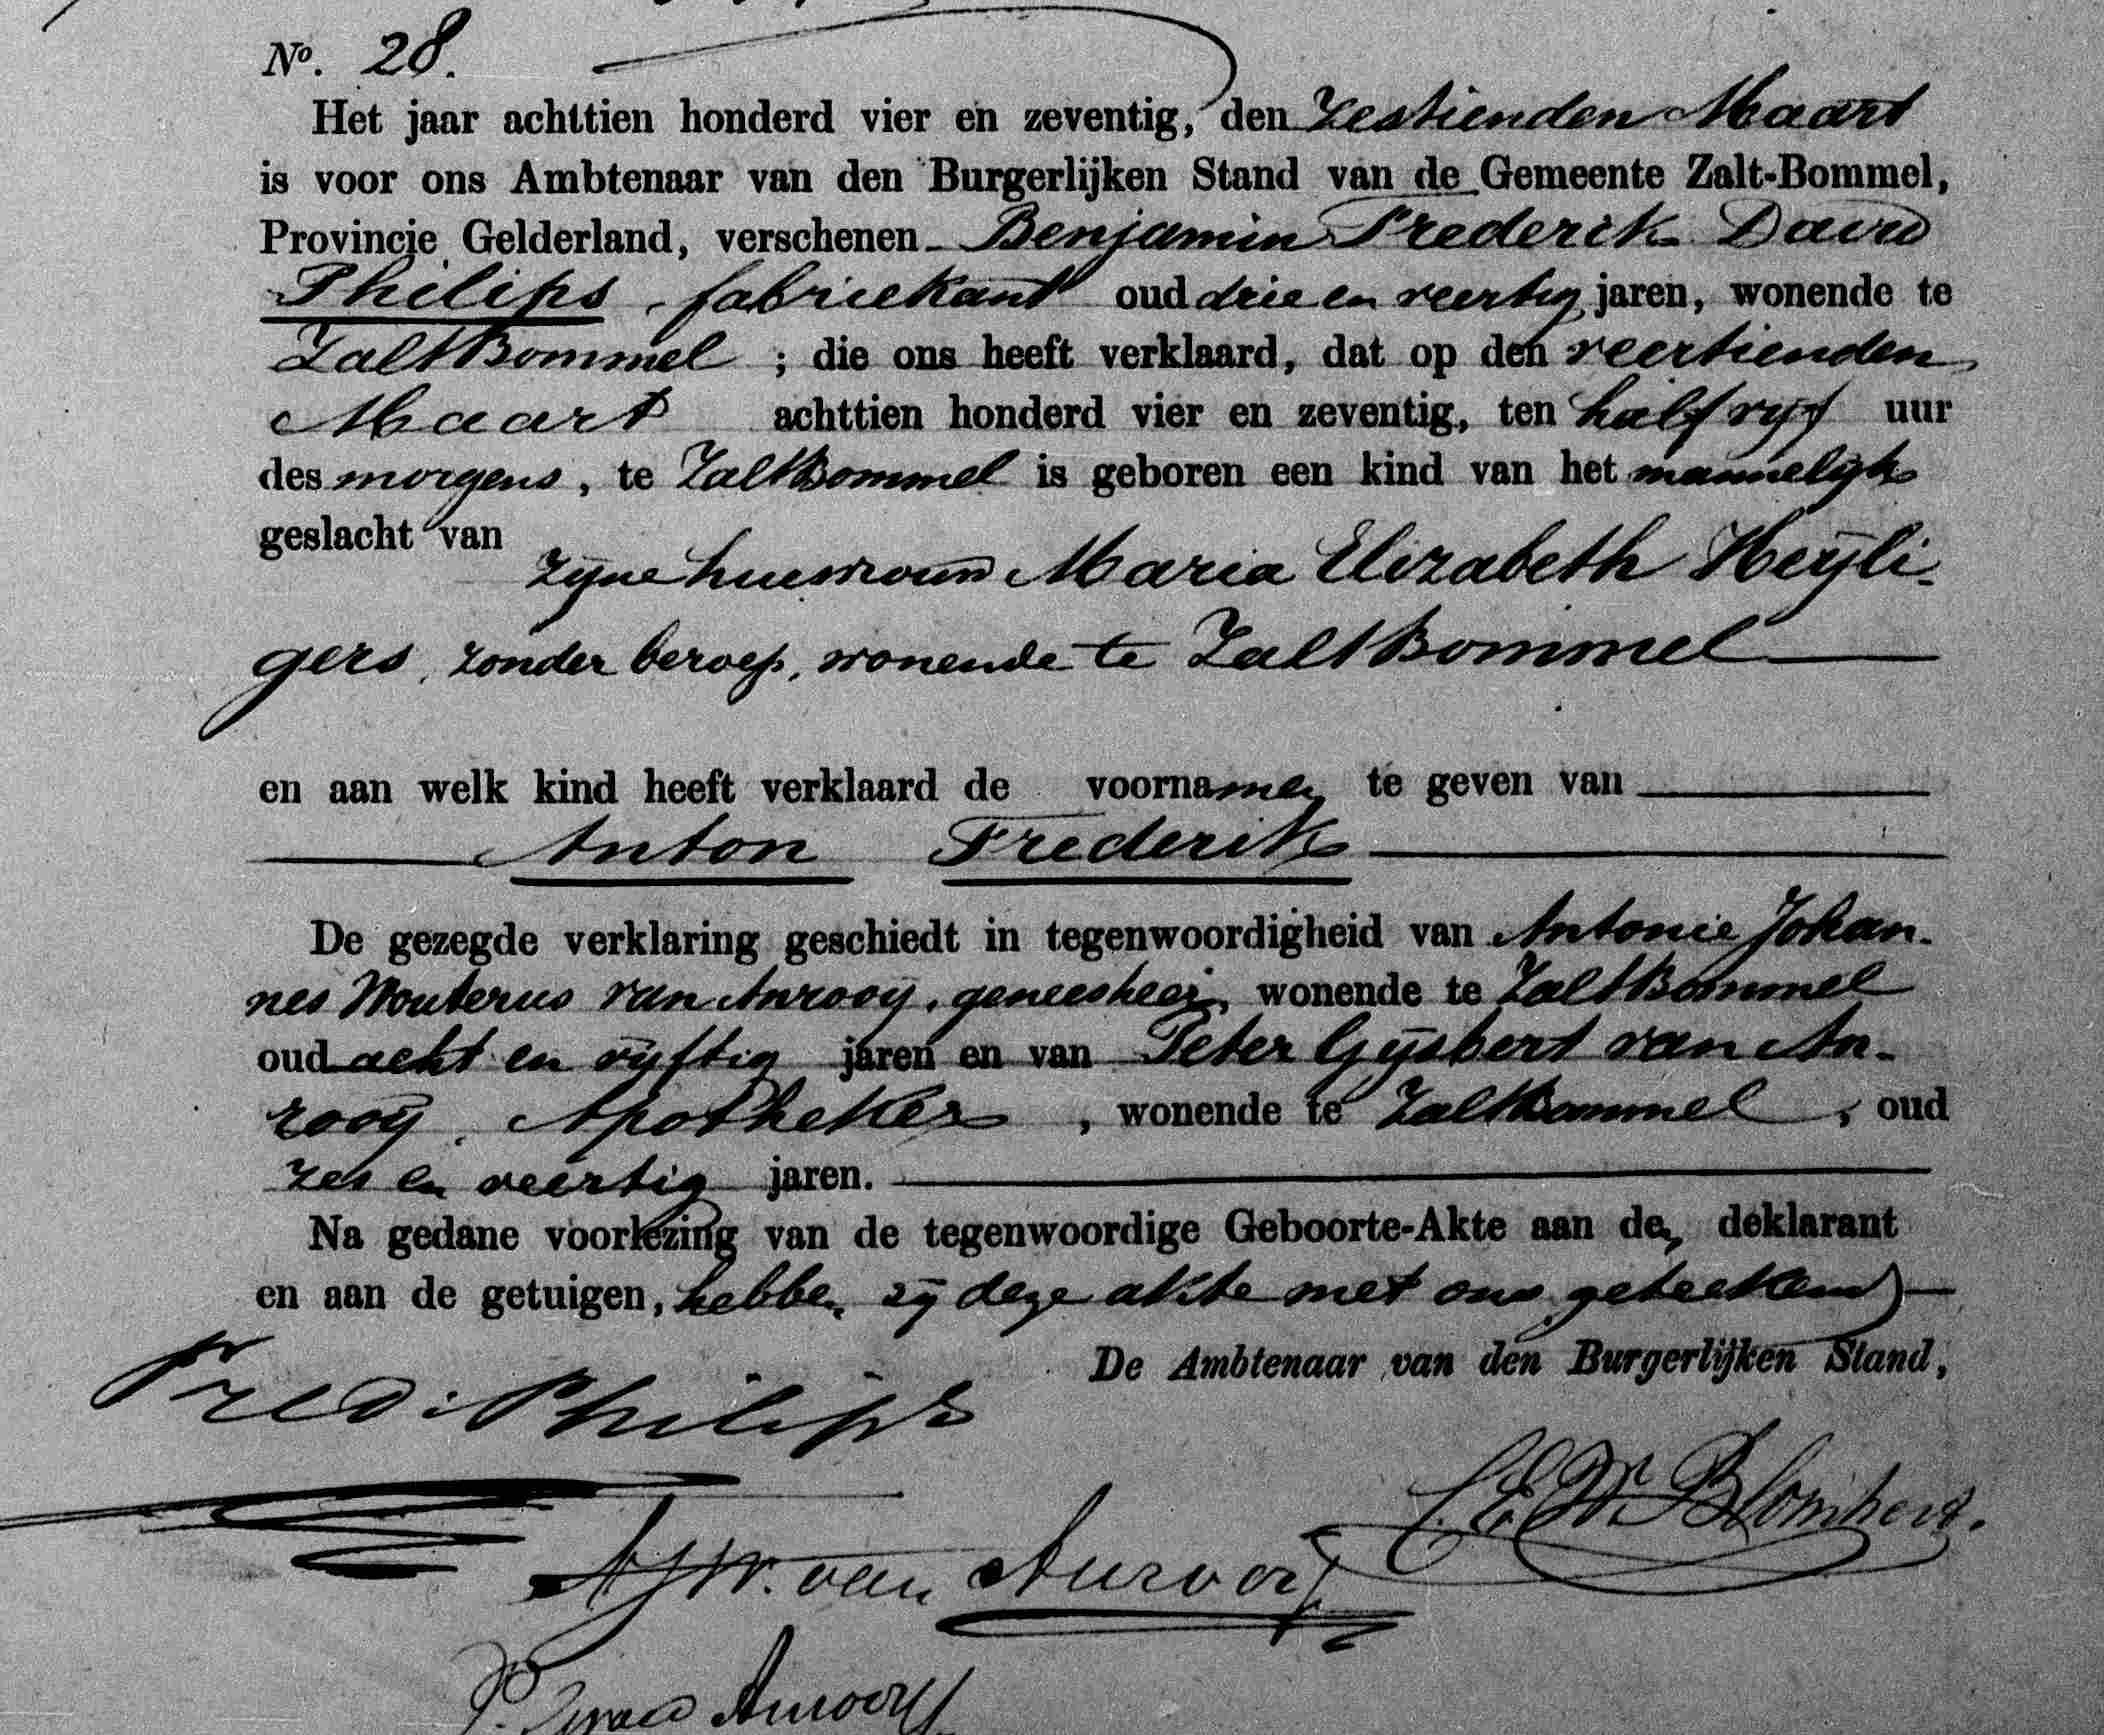 No. 28.
Het jaar achttien honderd vier en zeventig, den Zestienden Maart
is voor ons Ambtenaar van den Burgerlijken Stand van de Gemeente Zalt-Bommel,
Provincie Gelderland, verschenen Benjamin Frederik David
Philips, fabriekant oud drie en veertig jaren, wonende te
ZaltBommel ; die ons heeft verklaard, dat op den veertienden
Maart achttien honderd vier en zeventig, ten half vijf uur
des morgens, te ZaltBommel is geboren een kind van het mannelijk
geslacht van
zijne huisvrouw Maria Elizabeth Heyli-
gers, zonder beroep, wonende te ZaltBommel
en aan welk kind heeft verklaard de voornamen te geven van
Anton Frederik
De gezegde verklaring geschiedt in tegenwoordigheid van Antonie Johan-
nes Wouterus van Anrooy, geneesheer, wonende te ZaltBommel
oud acht en vijftig jaren en van Peter Gijsbert van An-
rooy, Apotheker, wonende te ZaltBommel, oud
zes en veertig jaren.
Na gedane voorlezing van de tegenwoordige Geboorte-Akte aan den deklarant
en aan de getuigen, hebben zij deze akte met ons geteekend
De Ambtenaar van den Burgerlijken Stand,
Fred: Philips
Blomhert.
AJW. van Anrooij
P. Anrooy